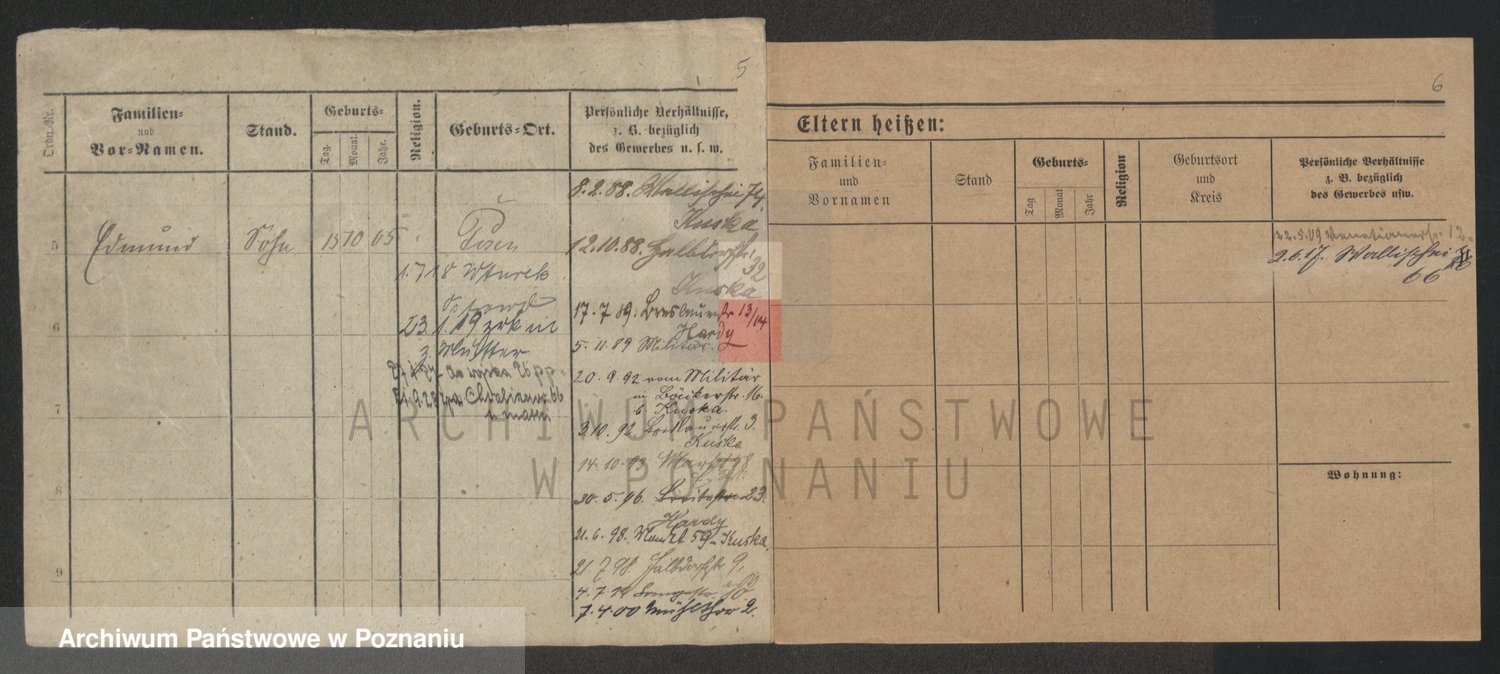 5
Ordn.-Nr.
Familien-
und
Vor-Namen.
Stand.
Geburts-
Tag.
Monat.
Jahr.
Religion.
Geburts-Ort.
Persönliche Verhältnisse,
z. B. bezüglich
des Gewerbes u. s. w.
8.2.88. Wallischei 74
Kuska
5 Edmund Sohn 15 10 05 " Posen
12.10.88. Halbdorfstr.
32
Kuska
1.7 18
17.7 89. Breslauerstr 13/14
Hardy
6
23.1.19
z. Mutter
5.11.89 Militär.
20.9.92 vom Militär
Böckerstr. 16.
b. Kuska.
7
3.10.92 Breslauerstr. 3.
Kuska
14.10.93
8
30.5.96. Breitestr. 23.
Hardy
21.6.98. Markt 59 - Kuska
21 7 98 Halbdorfstr 9.
9
7.4.00 Mühlthor 2.
6
Eltern heißen:
Familien-
und
Vornamen
Stand
Geburts-
Tag
Monat
Jahr
Religion
Geburtsort
und
Kreis
Persönliche Verhältnisse
z. B. bezüglich
des Gewerbes usw.
22.5.09 Venetianerstr. 12
2.6.17. Wallischei
66
Wohnung:
ARCHIWUM PAŃSTWOWE
W POZNANIU
Archiwum Państwowe w Poznaniu